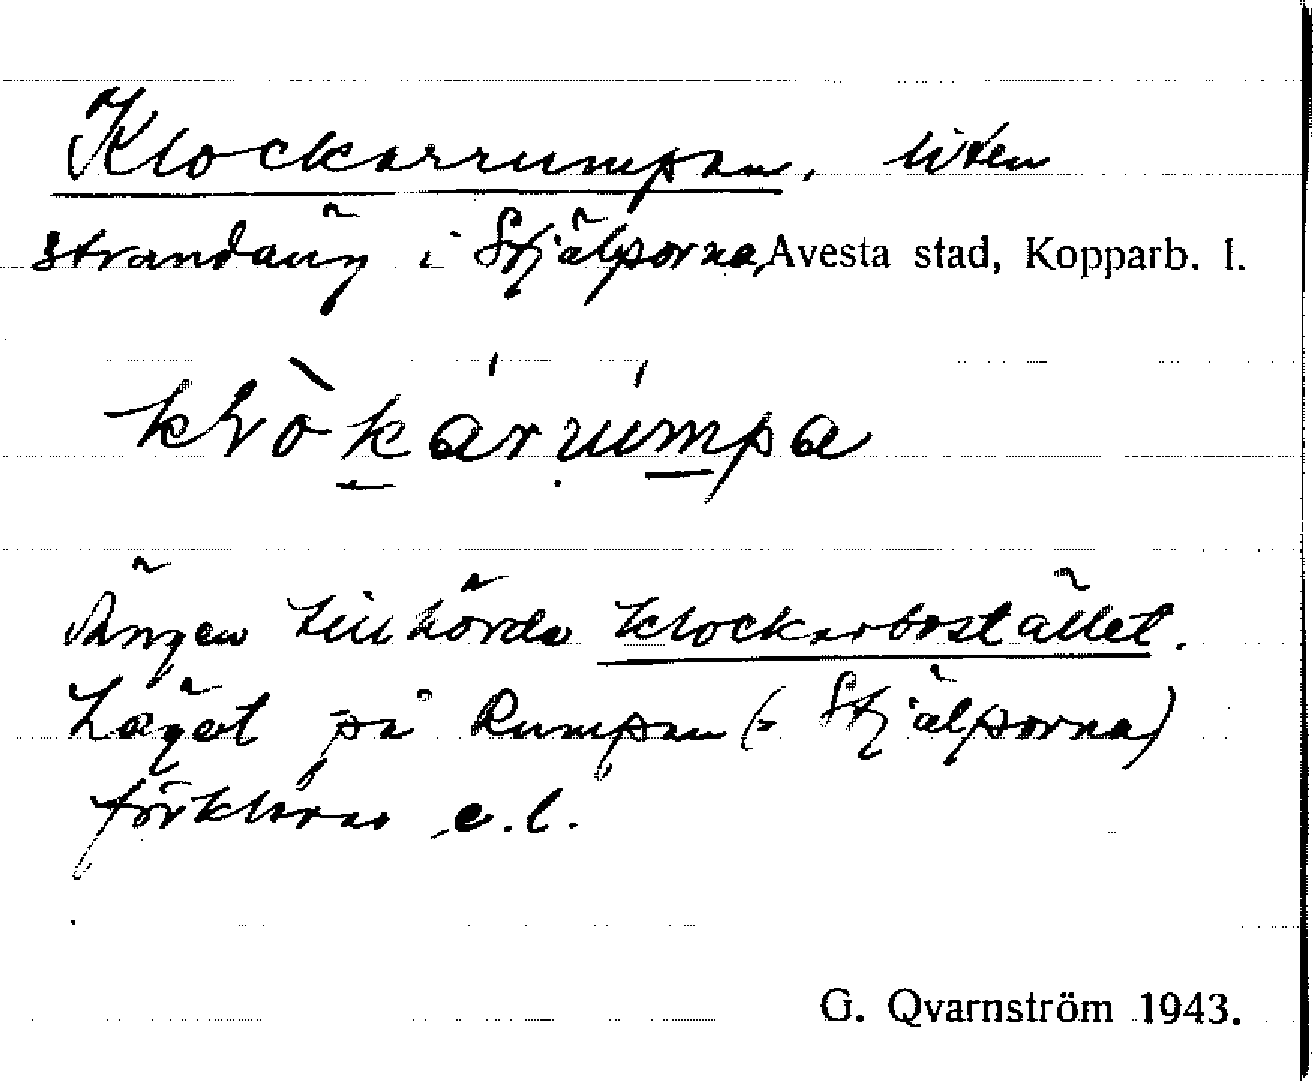 Klockarrumpan, liten
strandäng i Stjälporna, Avesta stad, Kopparb. l.
klòkarrumpa
Ängen tillhörde klockarbostället.
Läget på Rumpan (= Stjälporna)
förklaras e.l.
G. Qvarnström 1943.